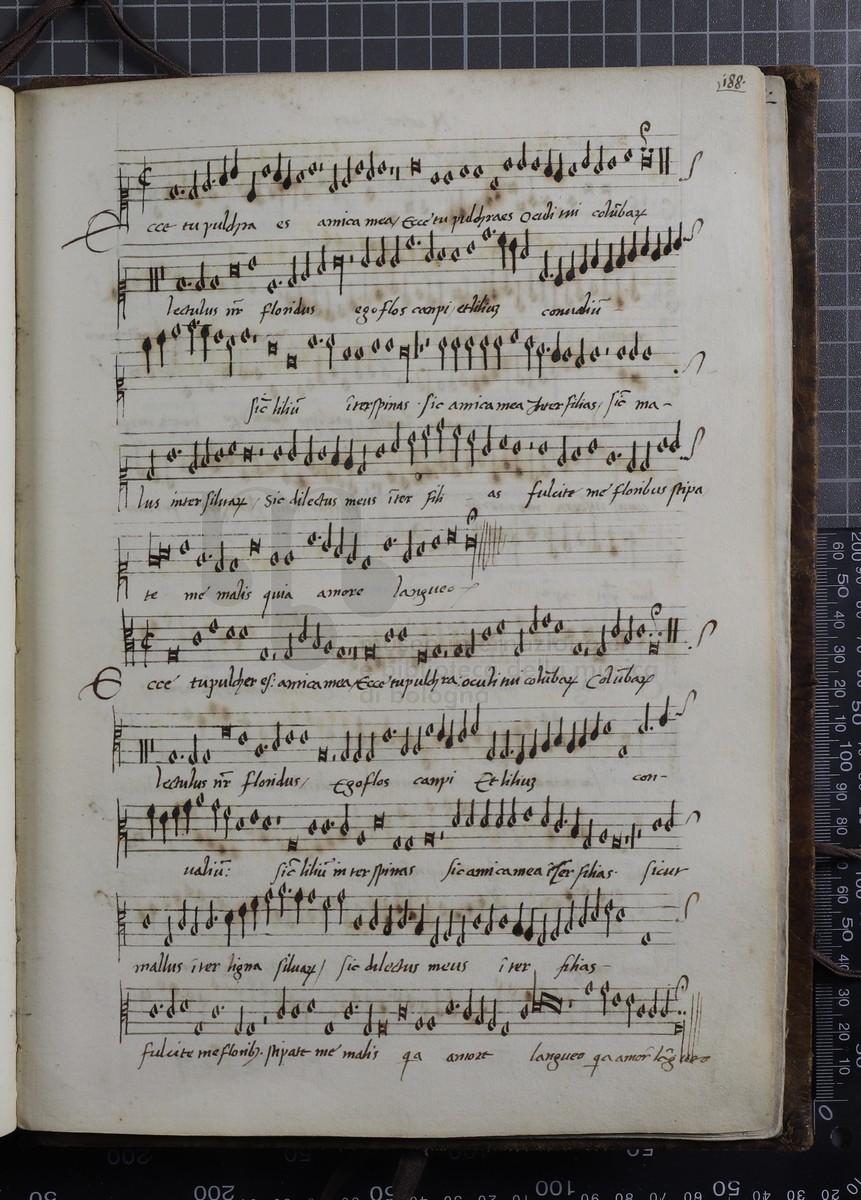 188.
Ecce tu pulchra es amica mea / Ecce tu pulchra es Oculi tui colūbaꝝ
lectulus nr̄ floridus ego flos canpi et liliuȝ conualiū
sic̄ liliū īter spinas · sic amica mea Inter filias / sic̄ ma-
lus inter siluaꝝ / Sic dilectus meus īter fili as fulcite me floribus stipa
te me malis quia amore langueo
Ecce tu pulcher es: amica mea / Ecce tu pulchra: oculi tui colūbaꝝ Colūbaꝝ
lectulus nr̄ floridus / Ego flos canpi Et liliuȝ con-
ualiū: sic̄ liliū inter spinas sic amica mea īter filias · sicut
mallus īter ligna siluaꝝ / sic dilectus meus īter filias
fulcite me floribȝ. stipate me malis qa amore langueo qa amor
biblioteca della musica
di bologna